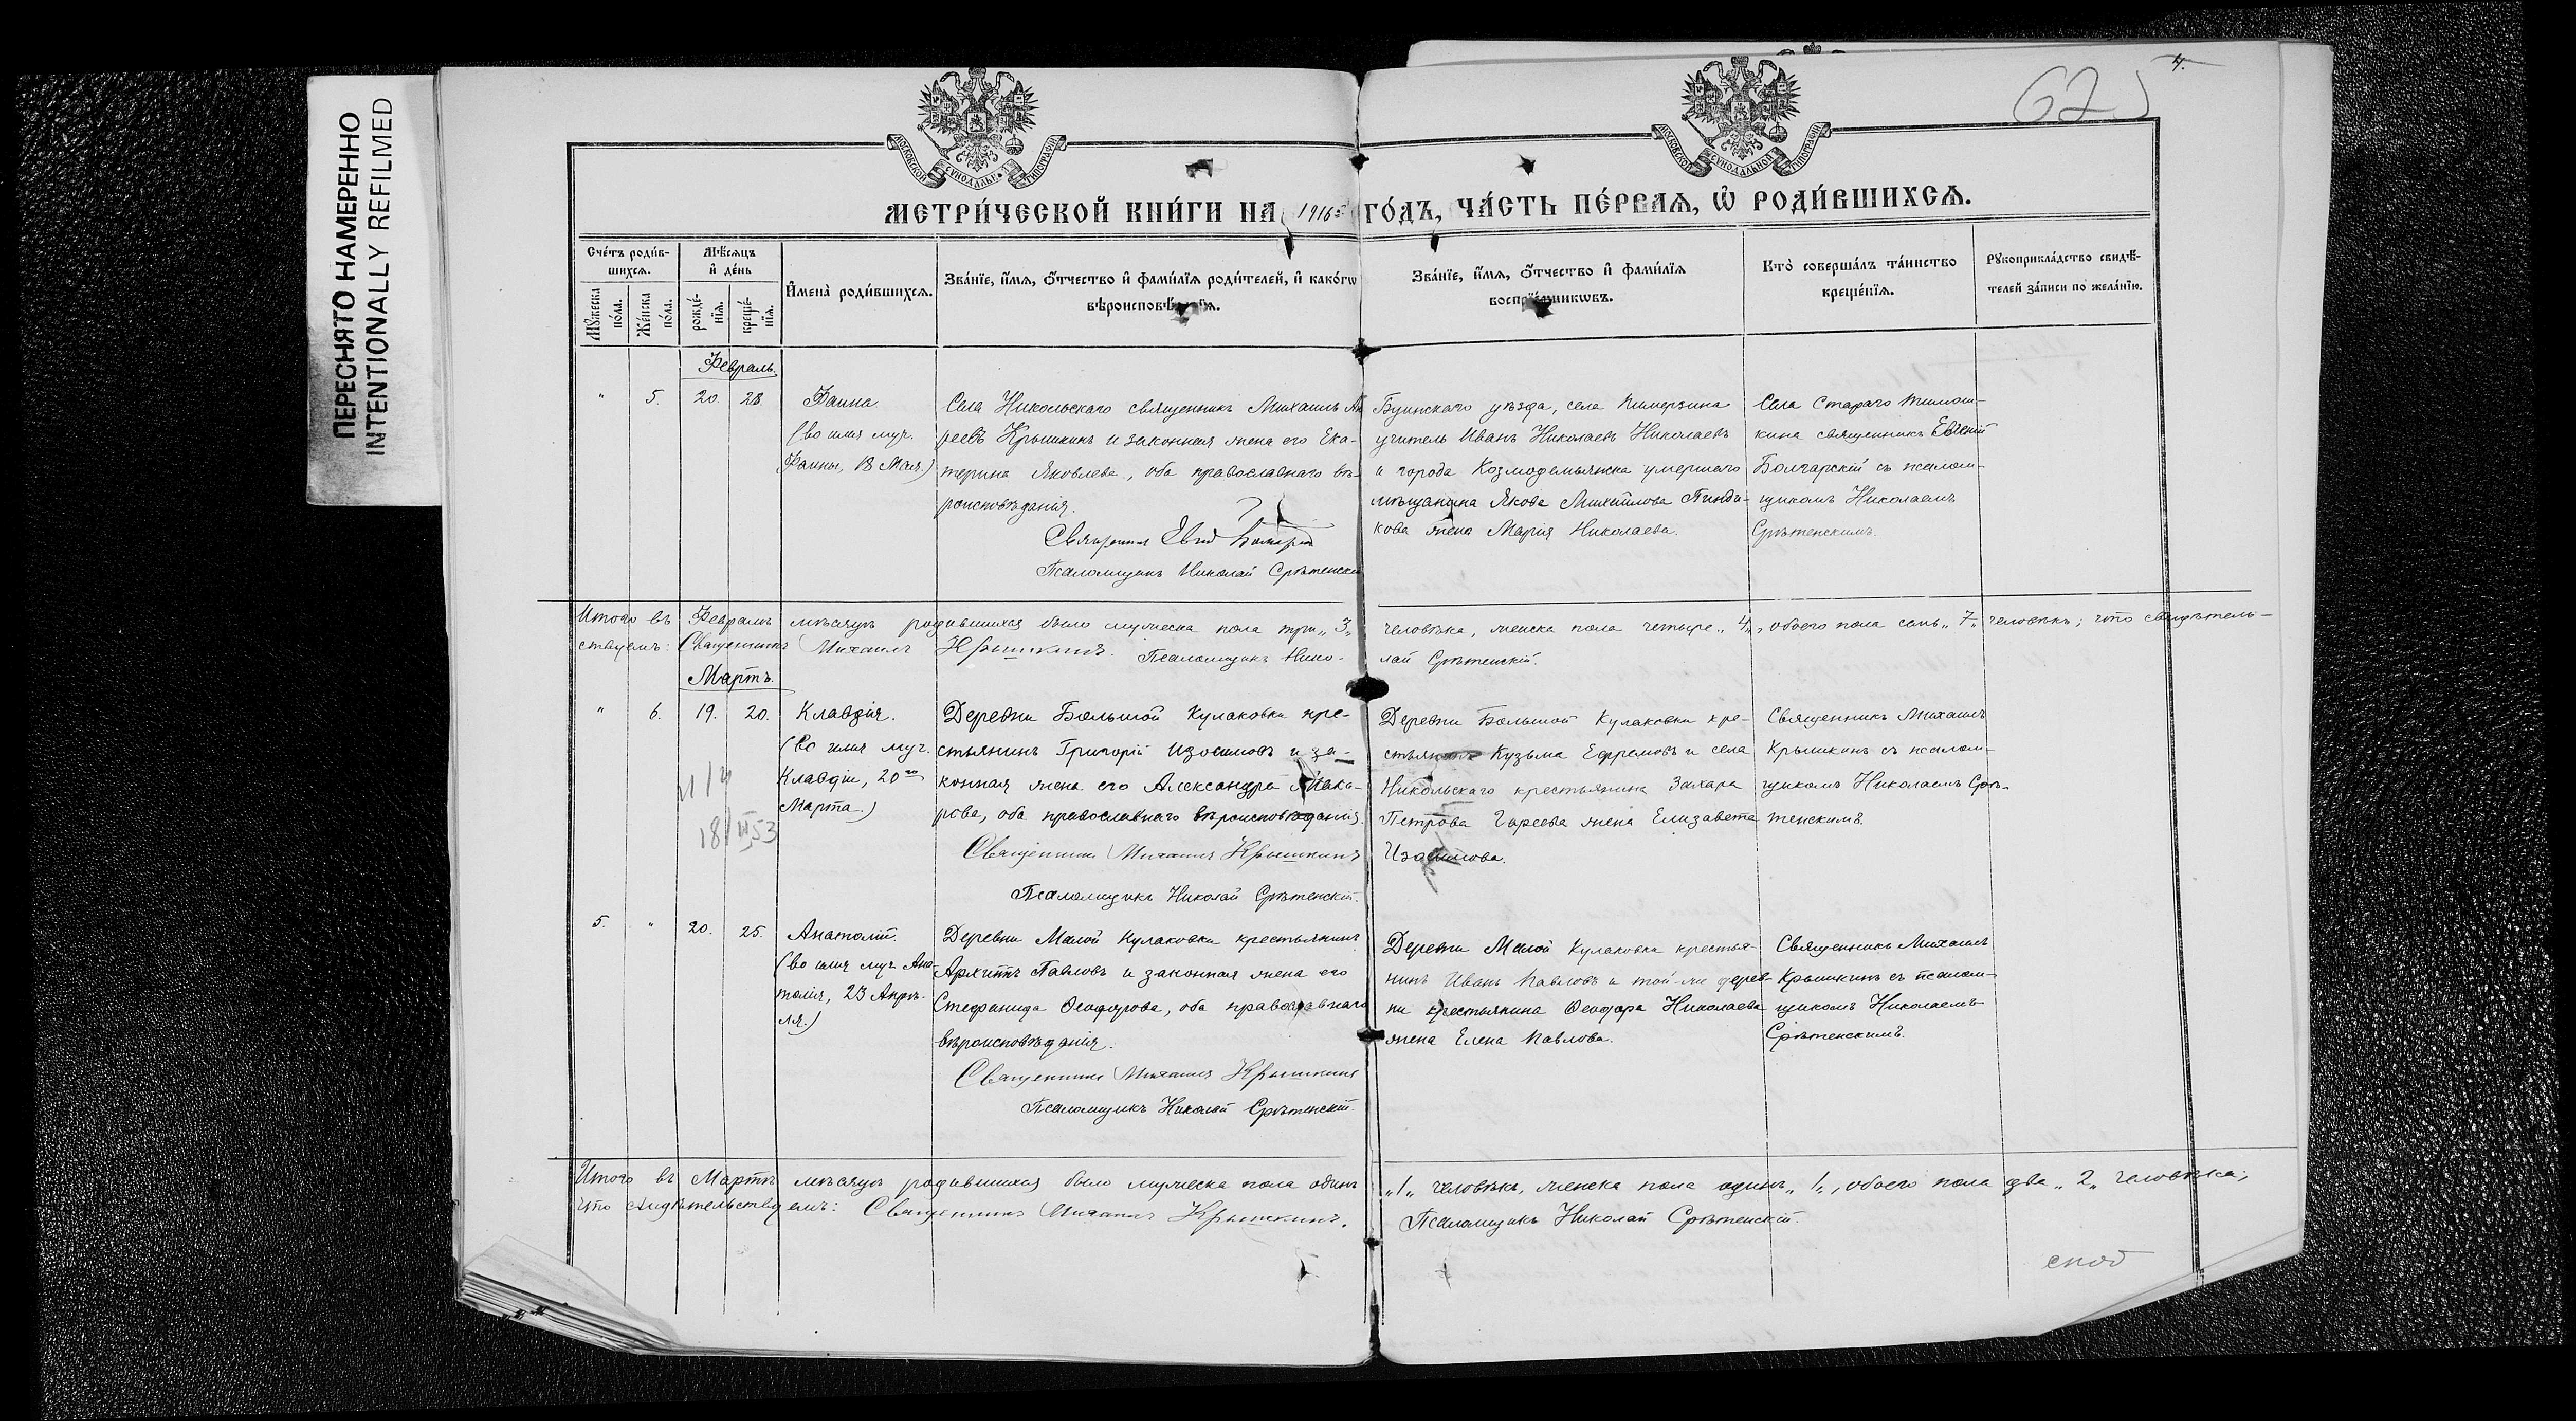 ПЕРЕСНЯТО НАМЕРЕННО
INTENTIONALLY REFILMED
4.
625
МОСКОВСКОЙ СѴНОДАЛЬНОЙ ТИПОГРАФІИ
МОСКОВСКОЙ СѴНОДАЛЬНОЙ ТИПОГРАФІИ
МЕТРИ́ЧЕСКОЙ КНИ́ГИ НА 1916й ГО́ДЪ, ЧА́СТЬ ПЕ́РВАѦ, Ѡ҆ РОДИ́ВШИХСѦ.
Сче́тъ роди́в-
шихсѧ.
Мꙋ́жеска по́ла.
Же́нска по́ла.
Мѣ́сѧцъ
и҆ де́нь
рожде́нїѧ.
креще́нїѧ.
И҆мена̀ роди́вшихсѧ.
Зва́нїе, и҆́мѧ, ѻ҆́тчество и҆ фами́лїѧ роди́телей, и҆ како́гѡ
вѣроисповѣ́данїѧ.
Зва́нїе, и҆́мѧ, ѻ҆́тчество и҆ фами́лїѧ
воспрїе́мникѡвъ.
Кто̀ соверша́лъ та́инство
креще́нїѧ.
Рꙋкоприкла́дство свидѣ́-
телей за́писи по жела́нїю.
Февраль.
" 5. 20. 28.
Фаина.
(во имя муч.
Фаины, 18 Мая.)
Села Никольскаго священникъ Михаилъ Ан
реевъ Крышкинъ и законная жена его Ека-
терина Яковлева, оба православнаго вѣ-
роисповѣданія.
Священникъ Евгеній Болгарскій
Псаломщикъ Николай Срѣтенскій
Буинскаго уѣзда, села
учитель Иванъ Николаевъ Николаевъ
и города Козмодемьянска умершаго
мѣщанина Якова Михайлова
кова жена Марія Николаева.
Села Стараго Тимош-
кина священникъ Евгеній
Болгарскій съ псалом-
щикомъ Николаемъ
Срѣтенскимъ.
Итого въ Февралѣ мѣсяцѣ родившихся было мужеска пола три „3„ человѣка, женска пола четыре „4„, обоего пола семь „7„ человѣкъ; что свидѣтель-
ствуемъ: Священникъ Михаилъ Крышкинъ. Псаломщикъ Нико- лай Срѣтенскій.
Мартъ.
" 6. 19. 20.
Клавдія.
(во имя муч.
Клавдіи, 20го
Марта.)
18/III 53
Деревни Большой Кулаковки кре-
стьянинъ Григорій Изосимовъ и за-
конная жена его Александра Мака-
рова, оба православнаго вѣроисповѣданія.
Священникъ Михаилъ Крышкинъ
Псаломщикъ Николай Срѣтенскій.
Деревни Большой Кулаковки кре-
стьянинъ Кузьма Ефремовъ и села
Никольскаго крестьянина Захара
Петрова Гареева жена Елизавета
Изосимова.
Священникъ Михаилъ
Крышкинъ съ псалом-
щикомъ Николаемъ Срѣ-
тенскимъ.
5. " 20. 25.
Анатолій.
(во имя муч. Ана-
толія, 23 Апрѣ-
ля.)
Деревни Малой Кулаковки крестьянинъ
Архиппъ Павловъ и законная жена его
Стефанида Ѳеодорова, оба православнаго
вѣроисповѣданія.
Священникъ Михаилъ Крышкинъ
Псаломщикъ Николай Срѣтенскій.
Деревни Малой Кулаковки крестья-
нинъ Иванъ Павловъ и той-же дерев-
ни крестьянина Ѳеодора Николаева
жена Елена Павлова.
Священникъ Михаилъ
Крышкинъ съ псалом-
щикомъ Николаемъ
Срѣтенскимъ.
Итого въ Мартѣ мѣсяцѣ родившихся было мужеска пола одинъ „1„ человѣкъ, женска пола одинъ „1„, обоего пола два „2„ человѣка;
что свидѣтельствуемъ: Священникъ Михаилъ Крышкинъ. Псаломщикъ Николай Срѣтенскій.